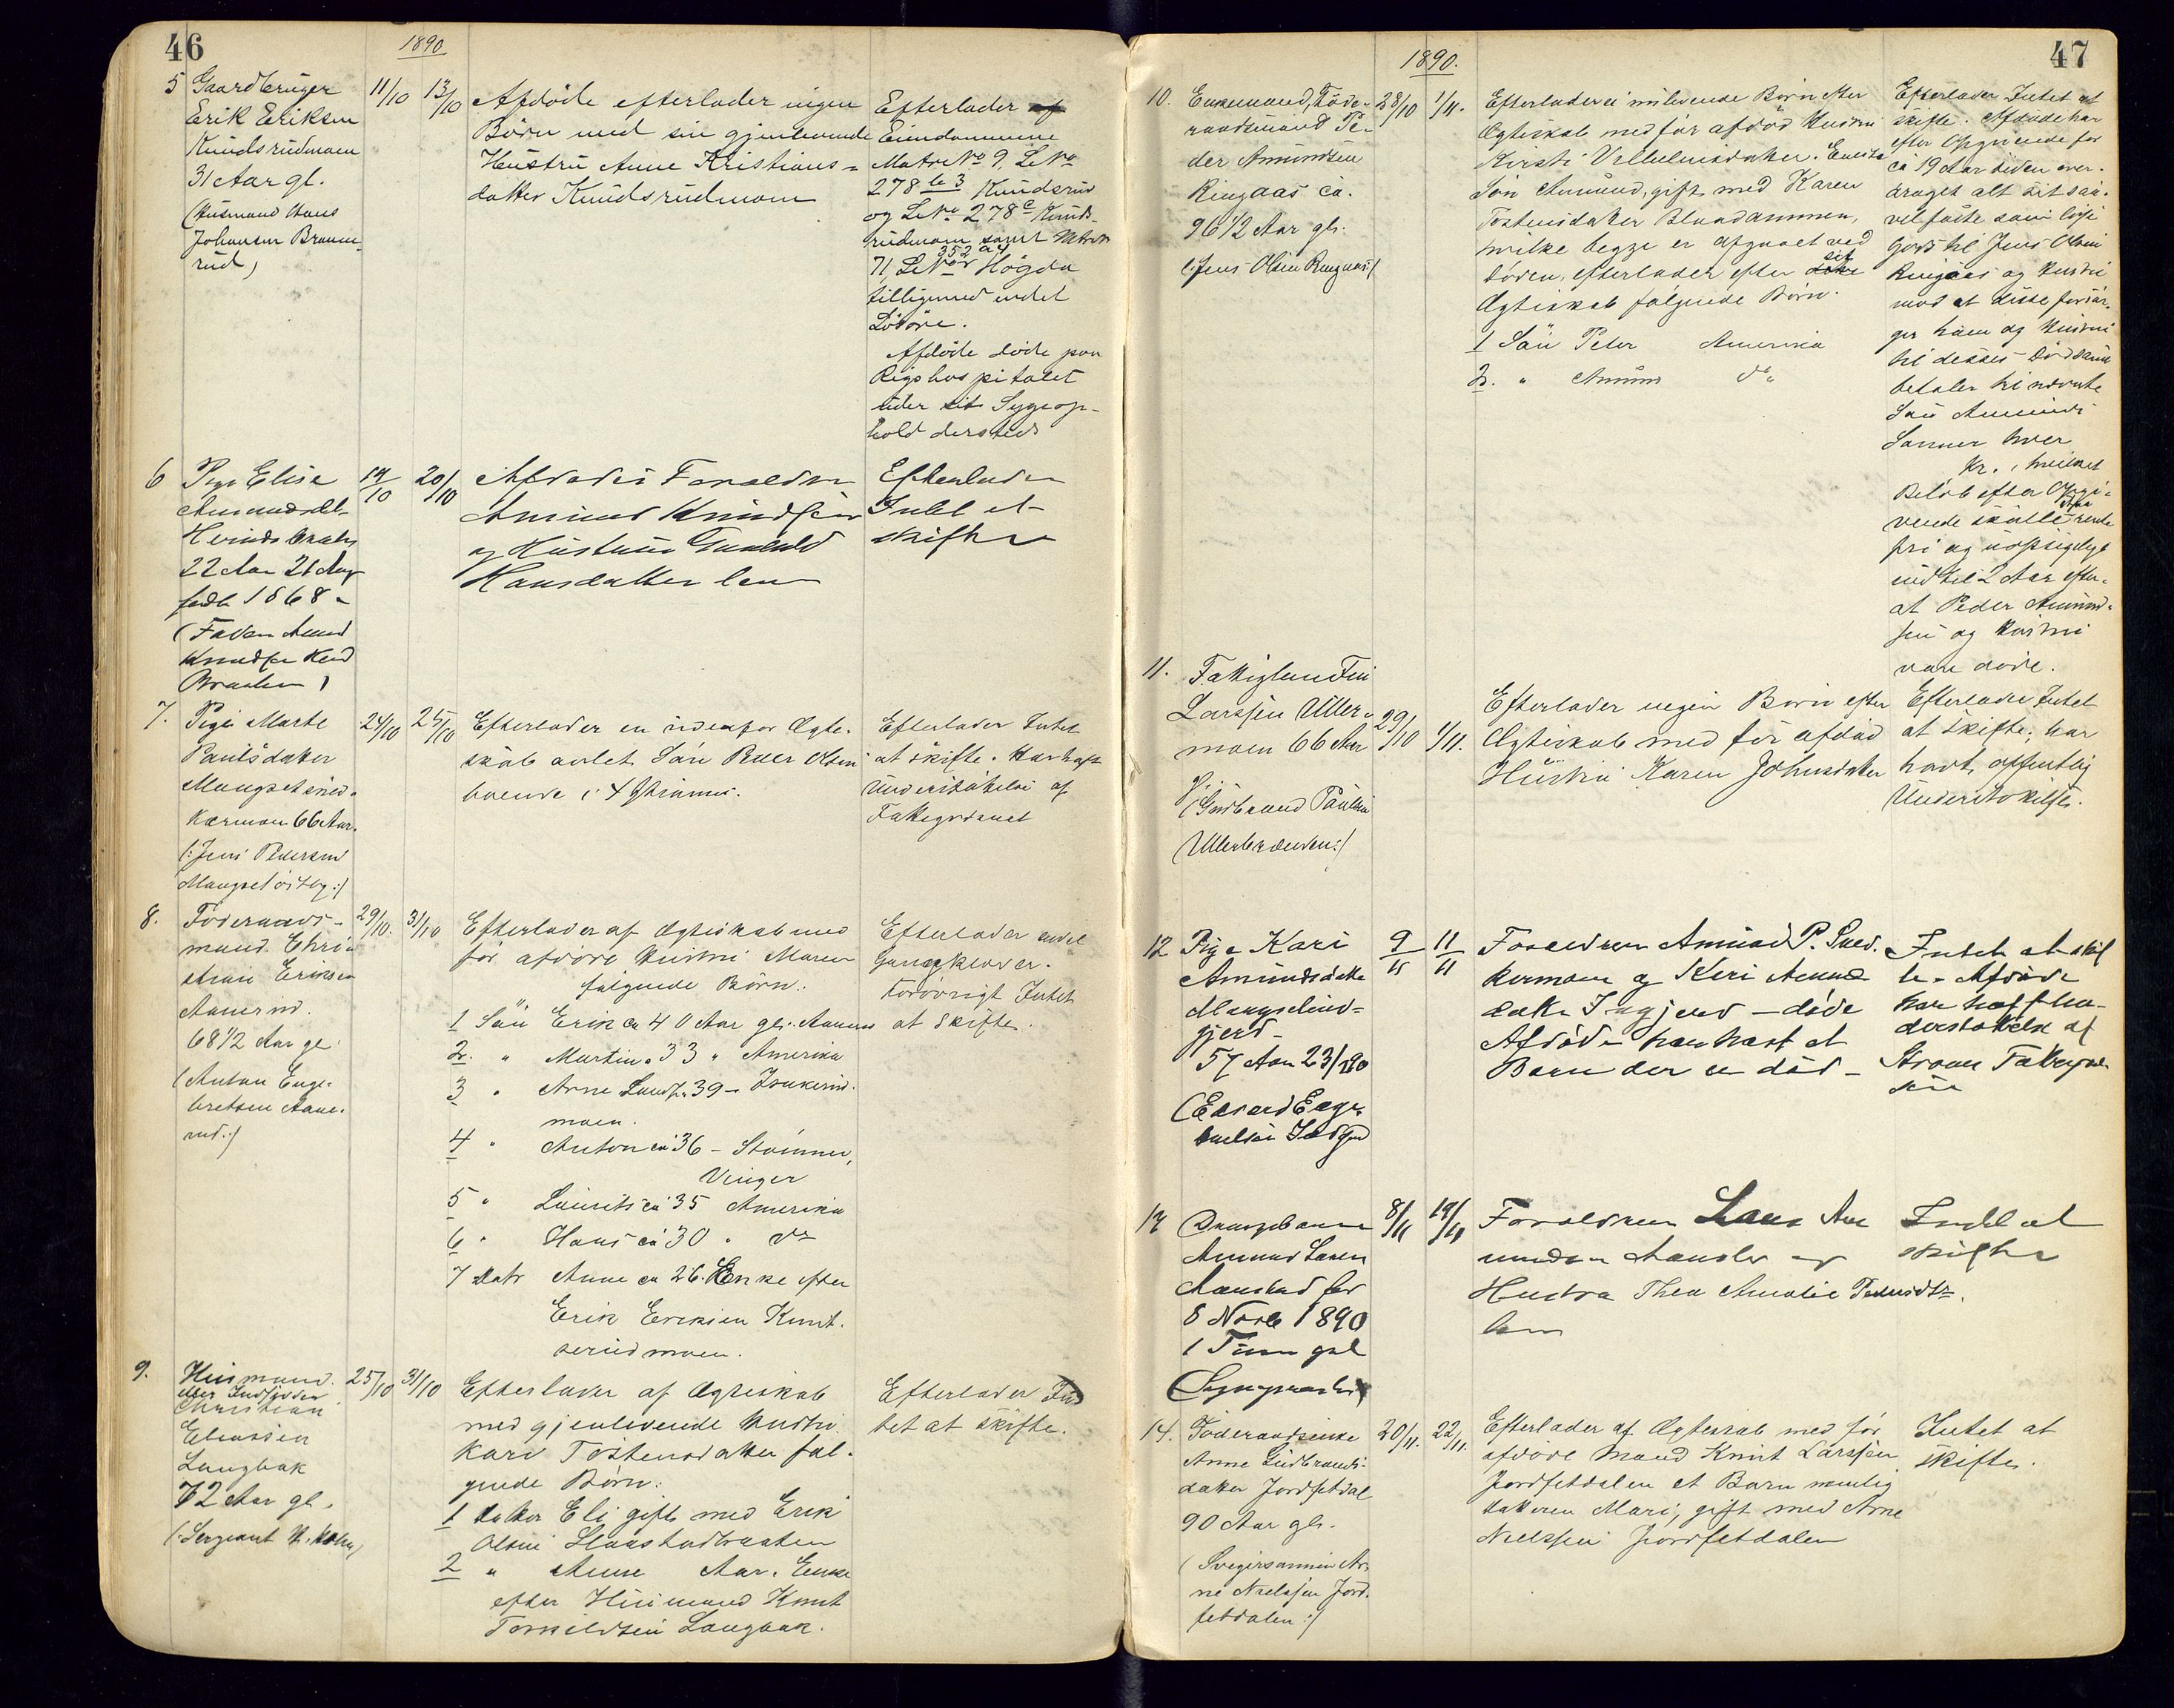 46
1890
5 Gaardbruger
Erik Eriksen
Kundsrudmoen
31 Aar gl.
(Husmand Hans
Johansen Braaten
rud)
11/10 13/10
Afdøde efterlader ingen
Børn med sin gjenlevende
Hustru Anne Kristians-
datter Kundsrudmoen
Efterlader af
Eiendommene
Matr No 9, LNo
278 b 3 Kundsrud
og LNo 278 c Kunds-
rudmoen samt Matr No
71 LNo 252 a 4 Høgda
tilligemed endel
Løsøre.
Afdøde døde paa
Rigshospitalet
under sit Sygeop-
hold dersteds
6 Pige Elise
Amundsdtr
22 Aar 21 Aug
født 1868
(Faderen Amund
Knudsen
Braaten)
14/10 20/10
Afdødes Forældre
Amund Knudsen
og Hustru Gunhild
Hansdatter lever
Efterlader
Intet at
skifte
7. Pige Marte
Paulsdatter
Mangset sned-
kermoen 66 Aar.
(: Jens Pedersen
Mangset østby :)
24/10 25/10
Efterlader en udenfor Ægte-
skab avlet Søn Peder Olsen
boende i
Efterlader Intet
at skifte. Har havt
Understøttelse af
Fattigvæsenet
8. Føderaads-
mand Chri-
stian Eriksen
Aanerud.
68 1/2 Aar gl.
(Anton Enge-
bretsen Aane-
rud :)
29/10. 31/10
Efterlader af Ægteskab med
før afdøde Hustru Maren
følgende Børn:
1 Søn Erik ca 40 Aar gl. Aanerud
2. " Martin " 33 " Amerika
3 " Arne 39 —
moen.
4 " Anton ca 36 — Strømner,
Vinger
5 " Laurits ca 35 Amerika
6 " Hans ca 30 " do
7 Datr Anne ca 26. Enke efter
Erik Eriksen Kunt-
serudmoen.
Efterlader endel
Gangklæder.
Forøvrigt Intet
at skifte.
9. Husmand
eller Inderst
Christian
Eliassen
Langbak
72 Aar gl.
(: Sergeant
25/10 31/10
Efterlader af Ægteskab
med gjenlevende Hustru
Kari Tostensdatter føl-
gende Børn:
1 Datter Eli gift med Erik
Olsen Haastadbraaten
2 " Anne Aar. Enke
efter Husmand Knut
Torkildsen Langbak.
Efterlader In-
tet at skifte.
47
1890.
10. Enkemand, Føde-
raadsmand Pe-
der Amundsen
Ringaas ca.
96 1/2 Aar gl.
(: Jens Olsen Ringaas :)
28/10 1/11.
Efterlader ei nulevende Børn efter
Ægteskab med før afdød Hustru
Kirsti Vilhelmsdatter. Eneste
Søn Amund, gift med Karen
Tostensdatter Blaadammen,
hvilke begge er afgaaet ved
Døden, efterlader efter sit
Ægteskab følgende Børn.
1 Søn Peter Amerika
2. " Amund do
Efterlader Intet at
skifte. Afdøde har
efter Opgivende for
ca 19 Aar siden over-
draget alt sit saa-
vel faste som løse
Gods til Jens Olsen
Ringaas og Hustru
mod at disse forsør-
ger ham og Hustru
til desses Død samt
betaler til nævnte
Søn Amunds
Sønner hver
Kr. , hvilket
Beløb efter Opgi-
vende skulle staa rente
fri og uopsigeligt
indtil 2 Aar efter-
at Peder Amund-
sen og Hustru
var døde.
11. Fattiglem Fin
Larssen Uller-
moen 66 Aar
(Gudbrand Paulsen
Ullerbrænden :)
29/10 1/11.
Efterlader ingen Børn efter
Ægteskab med før afdød
Hustru Karen Johnsdatter
Efterlader Intet
at skifte; har
havt offentlig
Understøttelse.
12 Pige Kari
Amundsdatter
Mangset
57 Aar 23/1 90
(Edvard Enge-
bretsen
9/11 11/11
Forældrene Amund P. Sned-
kermoen og Kari Amunds-
datter — døde
Afdøde har havt et
Barn der er død —
Intet at skif
te. Afdøde
har havt Un-
derstøttelse af
Strøm Fattigvæ-
sen
13 Drengebarn
Amund Larsen
Aanstad født
8 Novb 1890
1 Time gml
8/11 14/11
Forældrene Lars Am
undsen og
Hustru Thea Amalie
lever
Intet at
skifte
14. Føderaadsenke
Anne Gudbrands-
datter Jordfetdal
90 Aar gl.
(Svigersønnen Ar-
ne Nielssen Jord-
fetdalen :)
20/11. 22/11.
Efterlader af Ægteskab med før
afdøde Mand Knut Larssen
Jordfetdalen et Barn nemlig
Datteren Mari, gift med Arne
Nielssen Jordfetdalen
Intet at
skifte.